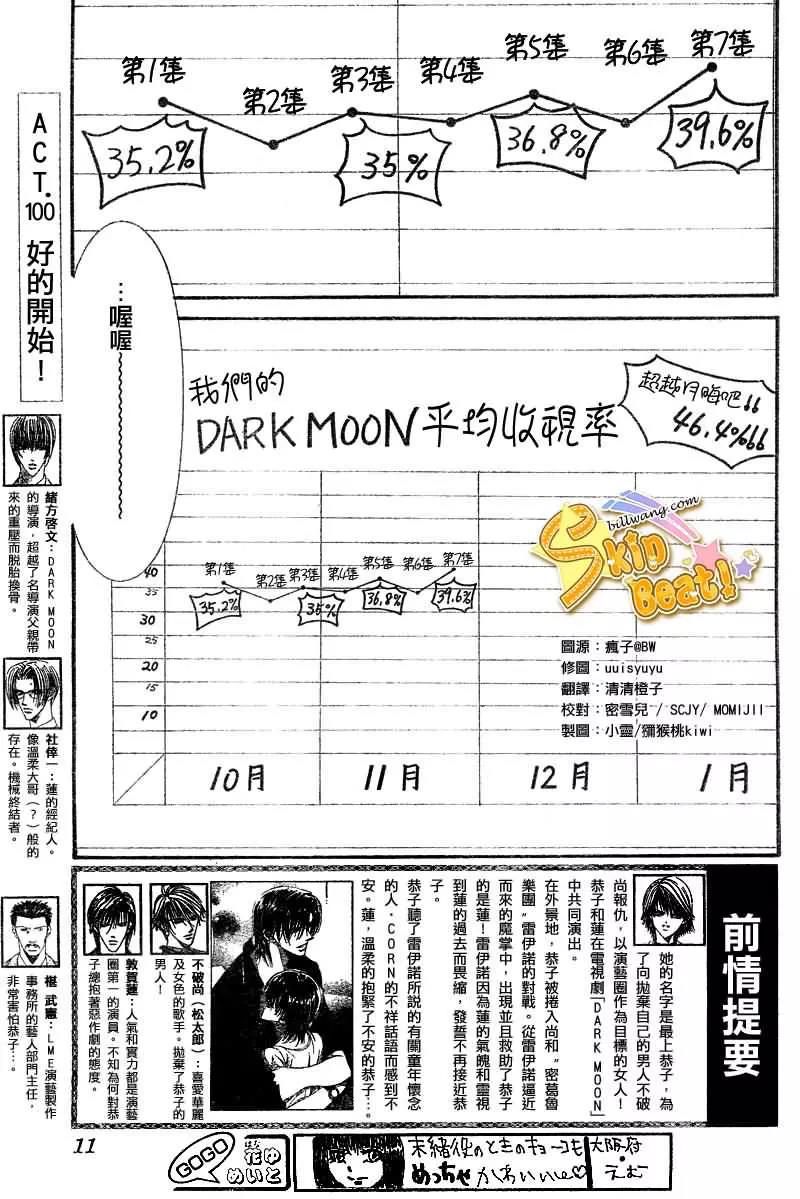 第1集
第2集
第3集
第4集
第5集
第6集
第7集
35.2%
35%
36.8%
39.6%
ACT.100 好的開始！
…喔喔～～～
我們的
DARK MOON平均收視率
超越月晦吧!!
46.4%!!
billwang.com
Skip Beat!
40
35
30
25
20
15
10
第1集
第2集
第3集
第4集
第5集
第6集
第7集
35.2%
35%
36.8%
39.6%
圖源：瘋子@BW
修圖：uuisyuyu
翻譯：清清橙子
校對：密雪兒 / SCJY/ MOMIJII
製圖：小靈/獼猴桃kiwi
10月
11月
12月
1月
緒方啓文：DARK MOON
的導演，超越了名導演父親帶
來的重壓而脫胎換骨。
社倖一：蓮的經紀人。
像溫柔大哥（？）般的
存在。機械終結者。
椹 武憲：LME演藝製作
事務所的藝人部門主任，
非常害怕恭子…。
前情提要
她的名字是最上恭子，為
了向拋棄自己的男人不破
尚報仇，以演藝圈作為目標的女人！
恭子和蓮在電視劇「DARK MOON」
中共同演出。
在外景地，恭子被捲入尚和〝密葛魯
樂團〞雷伊諾的對戰。從雷伊諾逼近
而來的魔掌中，出現並且救助了恭子
的是蓮！雷伊諾因為蓮的氣魄和靈視
到蓮的過去而畏縮，發誓不再接近恭
子。
恭子聽了雷伊諾所說的有關童年懷念
的人．CORN的不祥話語而感到不
安。蓮，溫柔的抱緊了不安的恭子…。
不破尚（松太郎）：喜愛華麗
及女色的歌手。拋棄了恭子的
男人！
敦賀蓮：人氣和實力都是演藝
圈第一的演員。不知為何對恭
子總抱著惡作劇的態度。
11
GOGO
花ゆめいと
未緒役のときのキョーコも
めっちゃかわいい♡
大阪府・えむ